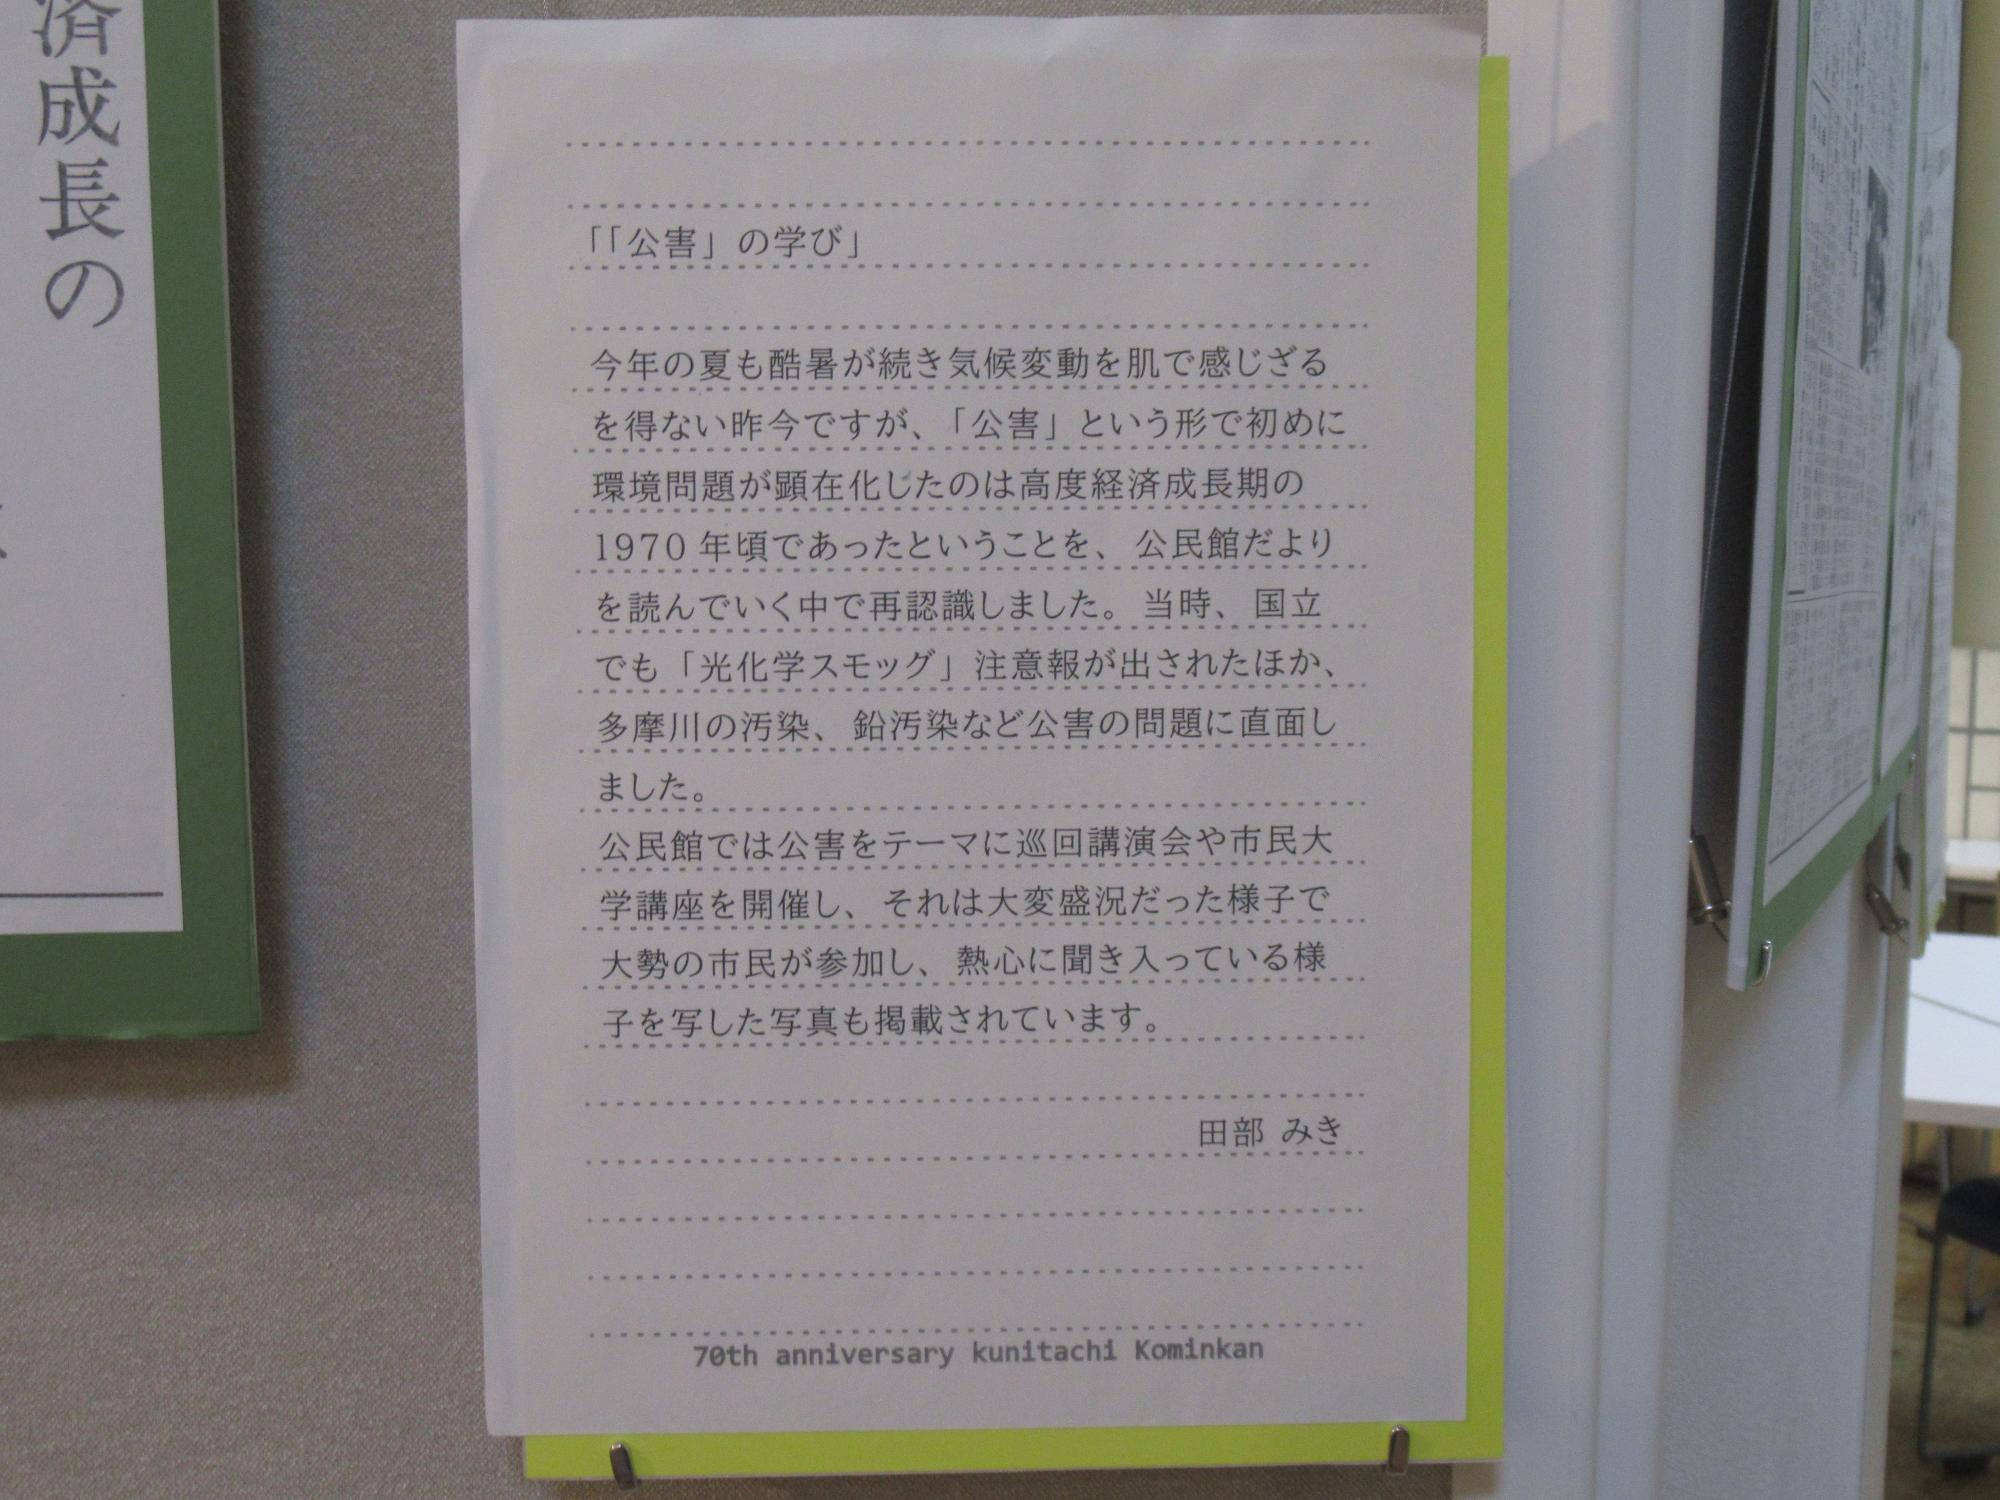 済成長の
「「公害」の学び」
今年の夏も酷暑が続き気候変動を肌で感じざる
を得ない昨今ですが、「公害」という形で初めに
環境問題が顕在化したのは高度経済成長期の
1970 年頃であったということを、公民館だより
を読んでいく中で再認識しました。当時、国立
でも「光化学スモッグ」注意報が出されたほか、
多摩川の汚染、鉛汚染など公害の問題に直面し
ました。
公民館では公害をテーマに巡回講演会や市民大
学講座を開催し、それは大変盛況だった様子で
大勢の市民が参加し、熱心に聞き入っている様
子を写した写真も掲載されています。
田部 みき
70th anniversary kunitachi Kominkan